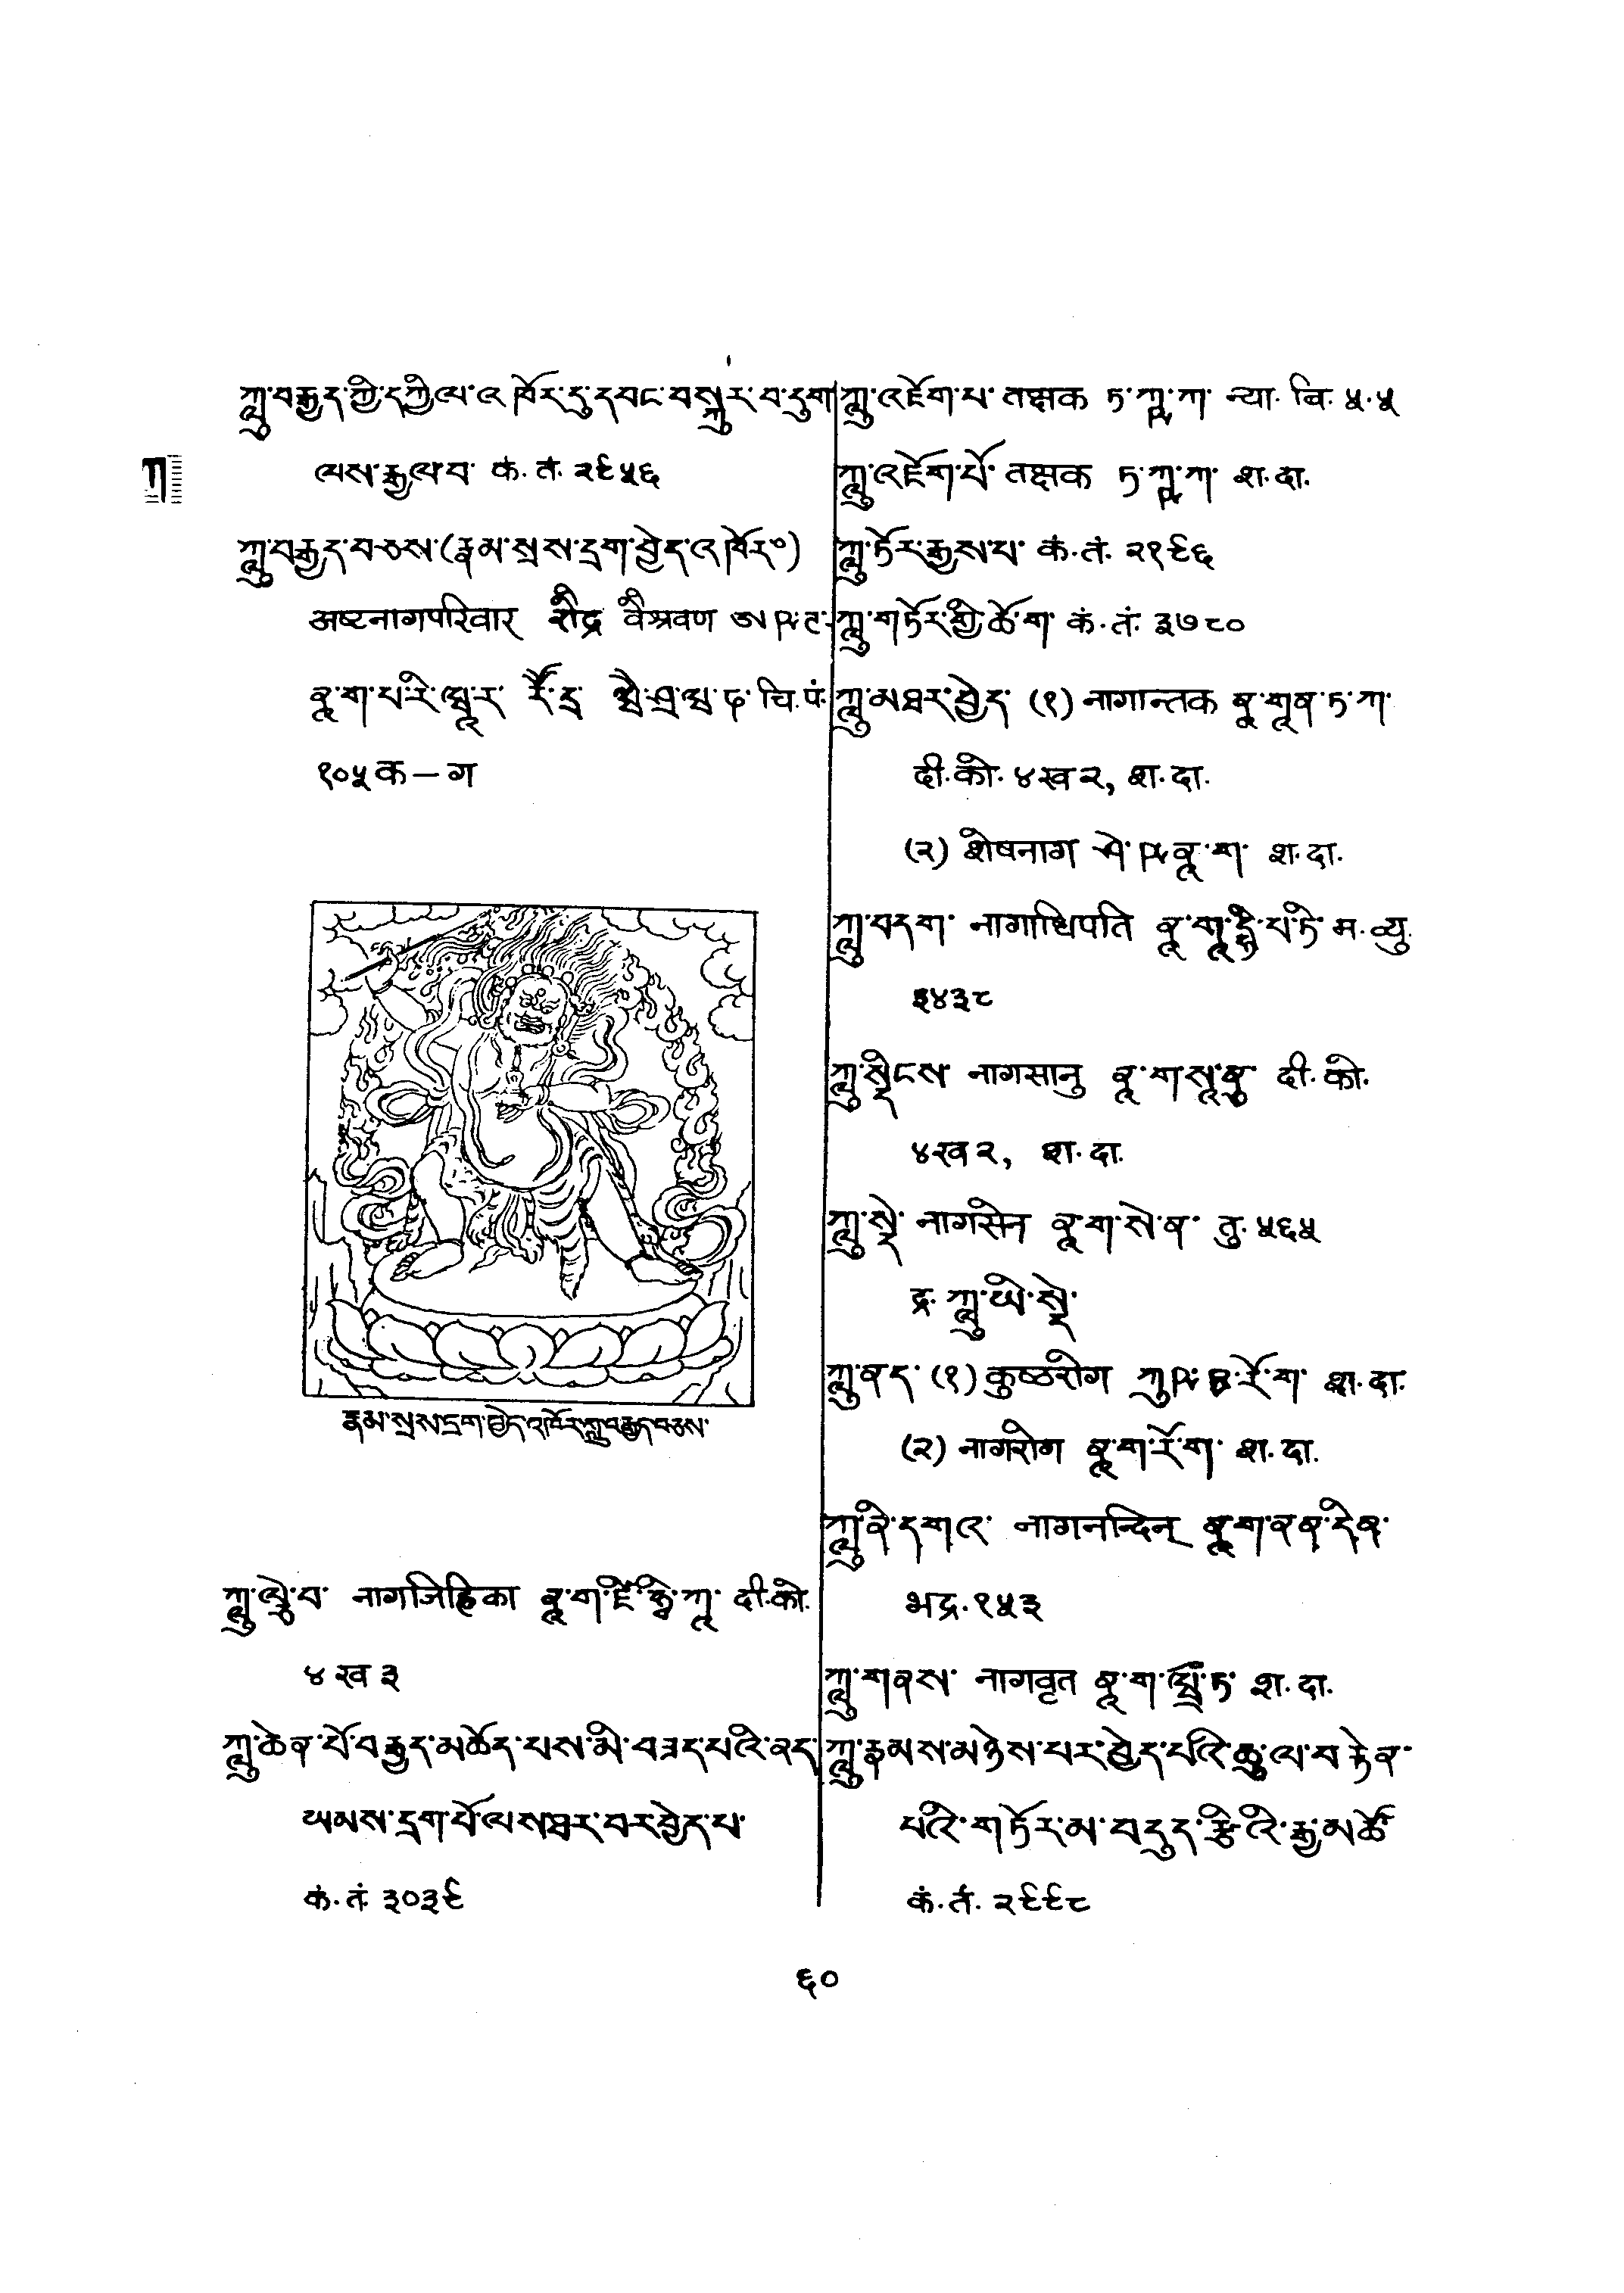 ཀླུ་བརྒྱད་ཀྱི་དཀྱིལ་འཁོར་དུ་དབང་བསྐུར་བ་དུག
ལས་རྒྱལ་བ་ कं. तं. २९५६
ཀ
ཀླུ་བརྒྱད་བཅས་(རྣམ་སྲས་དྲག་བྱེད་འཁོར°)
अष्टनागपरिवार रौद्र वैश्रवण ཨཥྚ་
ནཱ་ག་པ་རི་ཝཱ་ར་ རཽ་དྲ་ ཝཻ་ཤྲ་ཝ་ཎ་ चि. पं.
१०५क – ग
རྣམ་སྲས་དྲག་བྱེད་འཁོར་ཀླུ་བརྒྱད་བཅས་
ཀླུ་ལྕེ་བ་ नागजिह्विका ནཱ་ག་ཛི་ཧྭི་ཀཱ་ दी. को.
४ ख ३
ཀླུ་ཆེན་པོ་བརྒྱད་མཆོད་པས་མི་བཟད་པའི་ནད་
ཡམས་དྲག་པོ་ལས་ཐར་བར་བྱེད་པ་
कं. तं. ३०३९
ཀླུ་འཇོག་པ་ तक्षक ཏ་ཀྵ་ཀ་ न्या. बि. ५.५
ཀླུ་འཇོག་པོ་ तक्षक ཏ་ཀྵ་ཀ་ श. दा.
ཀླུ་ཏོར་རྒྱས་པ་ कं. तं. २१९६
ཀླུ་གཏོར་གྱི་ཆོ་ག་ कं. तं. ३७८०
ཀླུ་མཐར་བྱེད་ (१) नागान्तक ནཱ་གཱན་ཏ་ཀ་
दी. को. ४ख २, श. दा.
(२) शेषनाग ཤེ་ཥ་ནཱ་ག་ श. दा.
ཀླུ་བདག་ नागाधिपति ནཱ་གཱ་དྷི་པ་ཏི་ म. व्यु.
३४३८
ཀླུ་སྡིངས་ नागसानु ནཱ་ག་སཱ་ནུ་ दी. को.
४ख २, श. दा.
ཀླུ་སྡེ་ नागसेन ནཱ་ག་སེ་ན་ तु. ५६५
द्र. ཀླུ་ཡི་སྡེ་
ཀླུ་ནད་ (१) कुष्ठरोग ཀུཥྛ་རོ་ག་ श. दा.
(२) नागरोग ནཱ་ག་རོ་ག་ श. दा.
ཀླུ་ནི་དགའ་ नागनन्दिन् ནཱ་ག་ནན་དིན་
भद्र. १५३
ཀླུ་གནས་ नागवृत ནཱ་ག་ཝྲྀ་ཏ་ श. दा.
ཀླུ་རྣམས་མཉེས་པར་བྱེད་པའི་ཆུ་ལ་བརྟེན་
པའི་གཏོར་མ་བདུད་རྩིའི་རྒྱ་མཚོ་
कं. तं. २९९८
६०